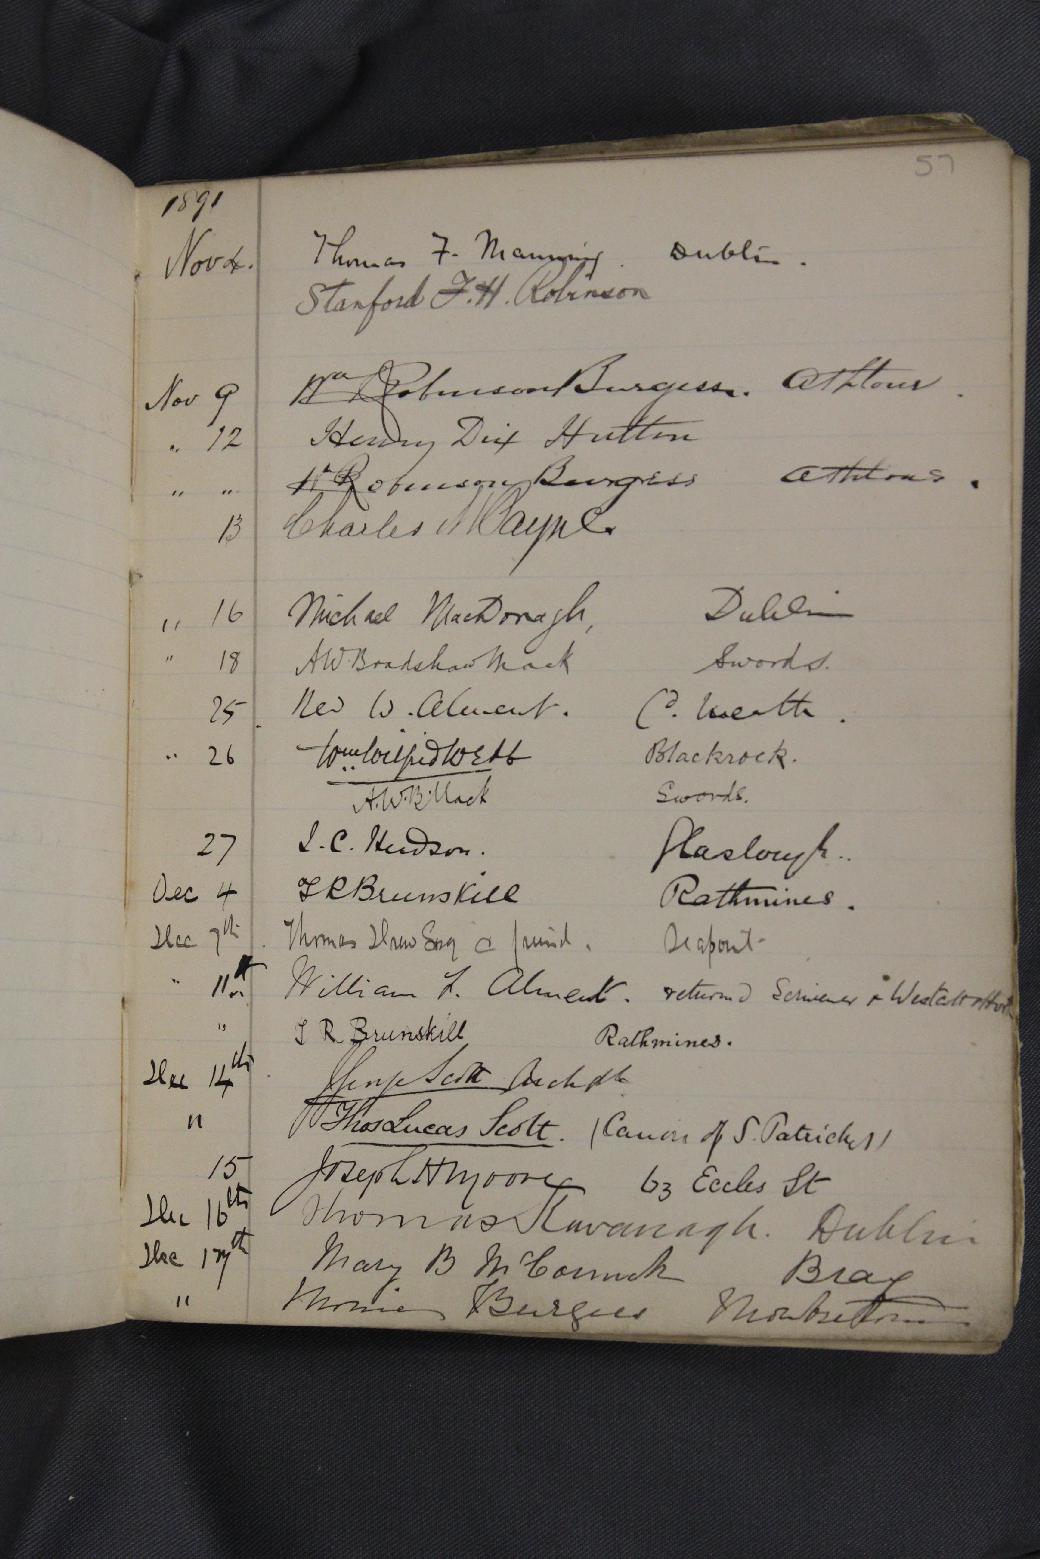 57
1891
Nov 4. Thomas F. Manning. Dublin.
Stanford F. H. Robinson
Nov 9 Wm Robinson Burgess.
" 12 Henry Dix Hutton
" " W Robinson Burgess
13 Charles Payne.
" 16 Michael MacDonagh, Dublin
" 18 A W Bradshaw Mack Swords.
25. Rev W. Alment. Co. Meath.
" 26 Wm Wilfrid Webb Blackrock.
A.W.B. Mack Swords.
27 I. C. Hudson. Glaslough.
Dec 4 I R Brunskill Rathmines.
Dec 7th Thomas Drew Esq & friend. Seapoint
" 11th William L. Alment. returned Scrivener & Westcott
" I R Brunskill Rathmines.
Dec 14th George Scott
" Thos Lucas Scott. (Canon of S. Patrick's)
15 Joseph H Moore 63 Eccles St
Dec 16th Thomas Kavanagh. Dublin
Dec 17th Mary B McCormick Bray
" Burgess